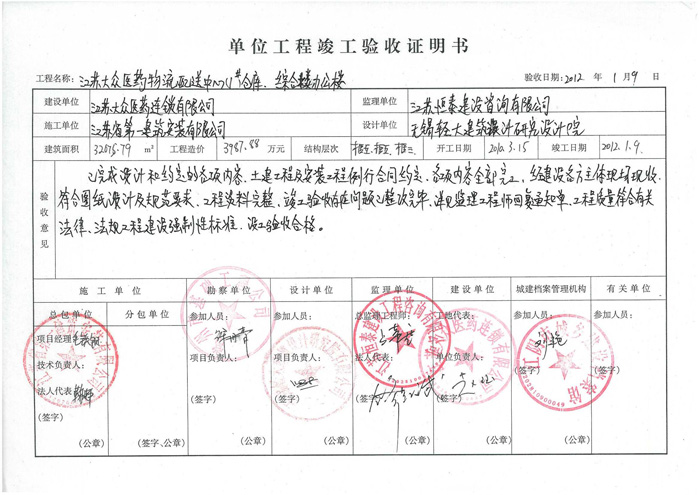 单位工程竣工验收证明书
工程名称：江苏大众医药物流配送中心1#仓库、综合楼办公楼 验收日期：2012 年 1 月 9 日
建设单位 江苏大众医药连锁有限公司 监理单位 江苏恒泰建设咨询有限公司
施工单位 江苏省第一建筑安装有限公司 设计单位 无锡轻大建筑设计研究院
建筑面积 32075.79 m² 工程造价 3987.88 万元 结构层次 开工日期 2010.3.15 竣工日期 2012.1.9.
验收意见
已完成设计和约定的各项内容、土建工程及安装工程例行合同约定、各项内容全部完工，经建设各方主体现场验收，
符合图纸设计及规范要求、工程资料完整、竣工验收存在问题已整改完毕，详见监理工程师回复通知单，工程质量符合有关
法律、法规工程建设强制性标准，竣工验收合格。
施工单位 勘察单位 设计单位 监理单位 建设单位 城建档案管理机构 有关单位
总包单位 分包单位 参加人员： 参加人员： 总监理工程师： 工地代表： 参加人员： 参加人员：
项目经理
技术负责人： 项目负责人： 项目负责人： 法人代表： 单位负责人：
法人代表
（签字） （签字） （签字） （签字） （签字） （签字）
（签字） （签字）
（公章） （签字、公章） （公章） （公章） （公章） （公章） （公章） （公章）